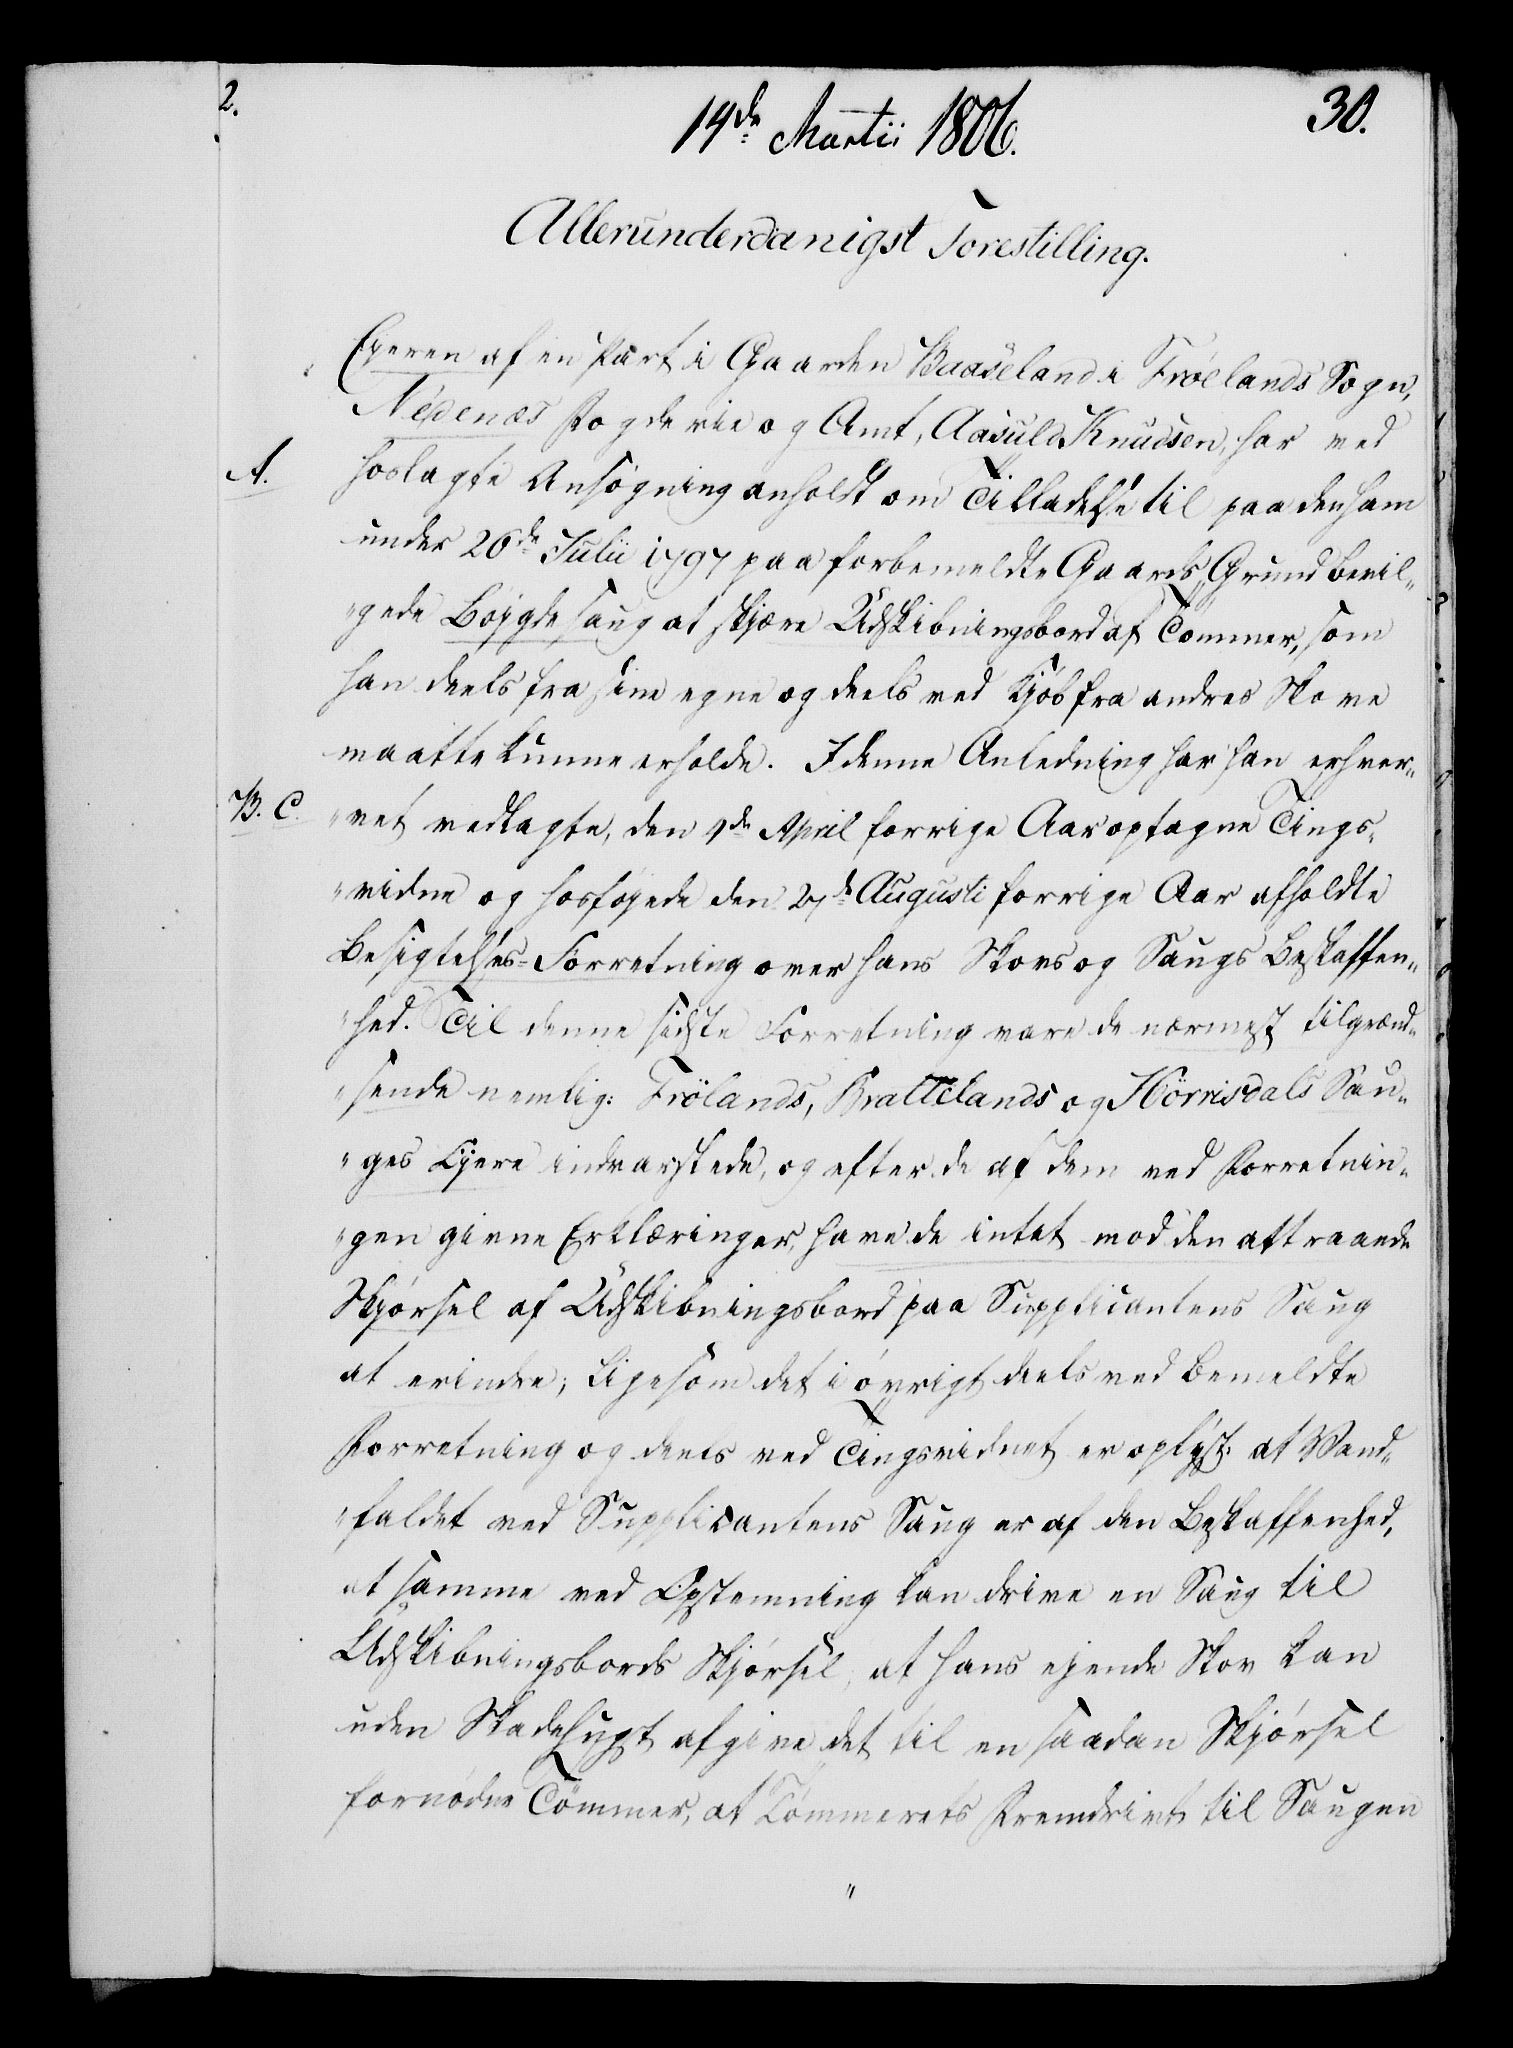 2.
14de Martii 1806.
30.
Allerunderdanigst Forestilling.
Ejeren af en Part i Gaarden Baaseland i Frøelands Sogn,
Nedenæs Fogderie og Amt, Aasuld Knudsen, har ved
A.
hoslagte Ansøgning anholdt om Tilladelse til paa den ham
under 26de Julii 1797 paa forbemeldte Gaards Grund bevil„
„gede Bøigdesaug at skjære Udskibningsbord af Tømmer, som
han deels fra sine egne og deels ved Kjøb fra andres Skove
maatte kunne erholde. I denne Anledning har han erhver„
B. C.
„vet vedlagte, den 1de April forrige Aar optagne Tings„
„vidne og hosføjede den 27de Augusti forrige Aar afholdte
Besigtelses-Forretning over hans Skovs og Saugs Beskaffen„
„hed. Til denne sidste Forretning vare de nærmest tilgrænd„
„sende nemlig: Frölands, Brattelands og Hörrisdals Sau„
„ges Ejere indvarslede, og efter de af dem ved Forretnin„
„gen givne Erklæringer, have de intet mod den attraaede
Skjørsel af Udskibningsbord paa Supplicantens Saug
at erindre; ligesom det i øvrigt deels ved bemeldte
Forretning og deels ved Tingsvidnet er oplyst: at Vand„
„faldet ved Supplicantens Saug er af den Beskaffenhed,
at samme ved Opstemning kan drive en Saug til
Udskibningsbords Skjørsel, at hans ejende Skov kan
uden Skadehugst afgive det til en saadan Skjørsel
fornødne Tømmer, at Tømmerets Fremdrivt til Saugen
"